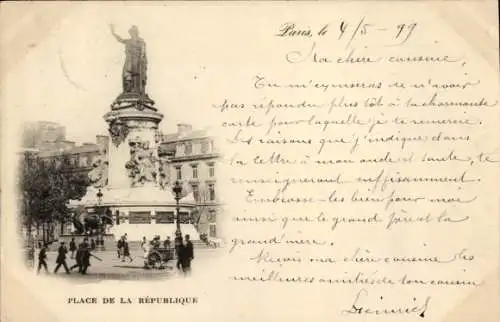 Paris, le 4/5-99
Ma chère cousine
Tu m'excuseras de n'avoir
pas répondu plus tôt à ta charmante
carte pour laquelle je te remercie.
Les raisons que j'indique dans
ta lettre à mon oncle et tante, te
renseigneront suffisamment.
Embrasse-les bien pour moi
ainsi que le grand père et la
grand'mère.
Reçois ma chère cousine les
meilleures amitiés de ton cousin
PLACE DE LA RÉPUBLIQUE